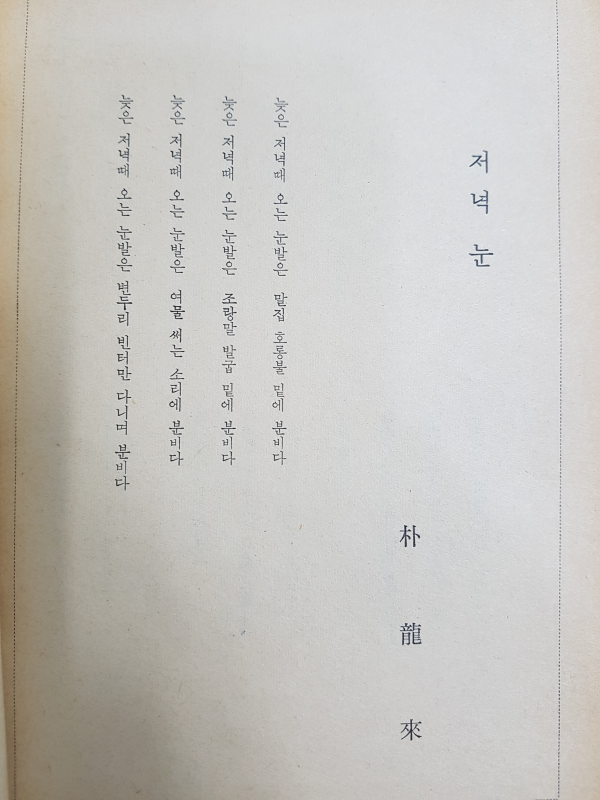 저녁 눈
朴龍來
늦은 저녁때 오는 눈발은 말집 호롱불 밑에 붐비다
늦은 저녁때 오는 눈발은 조랑말 발굽 밑에 붐비다
늦은 저녁때 오는 눈발은 여물 써는 소리에 붐비다
늦은 저녁때 오는 눈발은 변두리 빈터만 다니며 붐비다